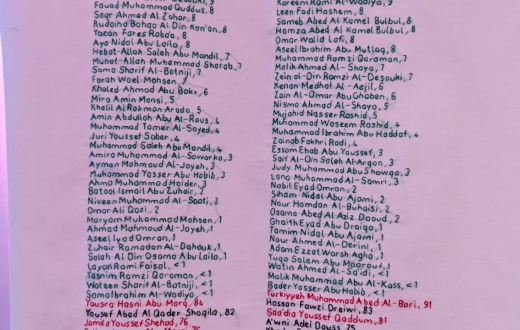 Fouad Muhammad Quddus, 8
Saqr Ahmad Al-Zahar, 8
Yazan Fares Rabaa, 8
Aya Nidal Abu Laila, 8
Hebat-Allah Saleh Abu Mandil, 7
Munat-Allah Muhammad Sharab, 7
Sama Sharif Al-Batniji, 7
Farah Wael Mohsen, 7
Khaled Ahmad Abu Bakr, 6
Mira Amin Mansi, 5
Khalil Al Rahman Arada, 5
Amin Abdullah Abu Al-Rous, 4
Muhammad Tamer Al-Sayed, 4
Juri Youssef Saber, 4
Muhammad Saleh Abu Mandil, 4
Amira Muhammad Al-Sawarka, 3
Ayman Mahmoud Al-Jayeh, 3
Muhammad Yasser Abu Habib, 3
Ahmad Muhammad Haider, 3
Batool Ismail Abu Zuhair, 2
Niveen Muhammad Al-Saati, 2
Omar Ali Qazi, 2
Maryam Muhammad Mohsen, 1
Ahmad Mahmoud Al-Jayeh, 1
Aseel Iyad Omran, 1
Zuhair Ramadan Al-Dahouk, 1
Salah Al Din Osama Abu Laila, 1
Layan Rami Faisal, <1
Tasnim Ramzi Qaraman, <1
Wateen Sharif Al-Batniji, <1
Sama Ibrahim Al-Wadiya, <1
Yousra Hasni Abu Marq, 84
Yousef Abed Al Qader Shaqlio, 82
Jamila Youssef Shehad, 76
Kareem Rami Al-Wadiya, 9
Leen Fadi Hashem, 8
Sameh Abed Al Kamel Bulbul, 8
Hamza Abed Al Kamel Bulbul, 8
Omar Walid Lafi, 8
Aseel Ibrahim Abu Mutlaq, 8
Muhammad Ramzi Qaraman, 7
Malik Ahmed Al-Shaya, 7
Zein al-Din Ramzi Al-Desouki, 7
Kenan Medhat Al-Aejil, 6
Zain Al-Omar Abu Ghaben, 6
Nisma Ahmad Al-Shaya, 5
Mujahid Nasser Rashid, 5
Muhammad Waseem Rashid, 4
Muhammad Ibrahim Abu Haddaf, 4
Zainab Fakhri Radi, 4
Essam Ehab Abu Youssef, 3
Saif Al-Din Saleh Al-Argan, 3
Judy Muhammad Abu Shawqa, 3
Lana Muhammad Al-Samri, 3
Nabil Eyad Omran, 2
Siham Nidal Abu Ajami, 2
Nour Hamdan Al-Buhaisi, 2
Osama Abed Al Aziz Daoud, 2
Ghaith Eyad Abu Draiqa, 1
Tamim Nidal Abu Ajami, 1
Nour Ahmed Al-Derini, 1
Adam Ezzat Warsh Agha, 1
Tuqa Salem Abu Maarouf, 1
Watin Ahmed Al-Said, <1
Malik Muhammad Abu Al-Kass, <1
Bader Yasser Abu Habib, <1
Turkiyyeh Muhammad Abed Al-Bari, 91
Hassan Fawzi Draiwi, 83
Saadia Youssef Qaddum, 81
A'wni Adel Dauss, 75